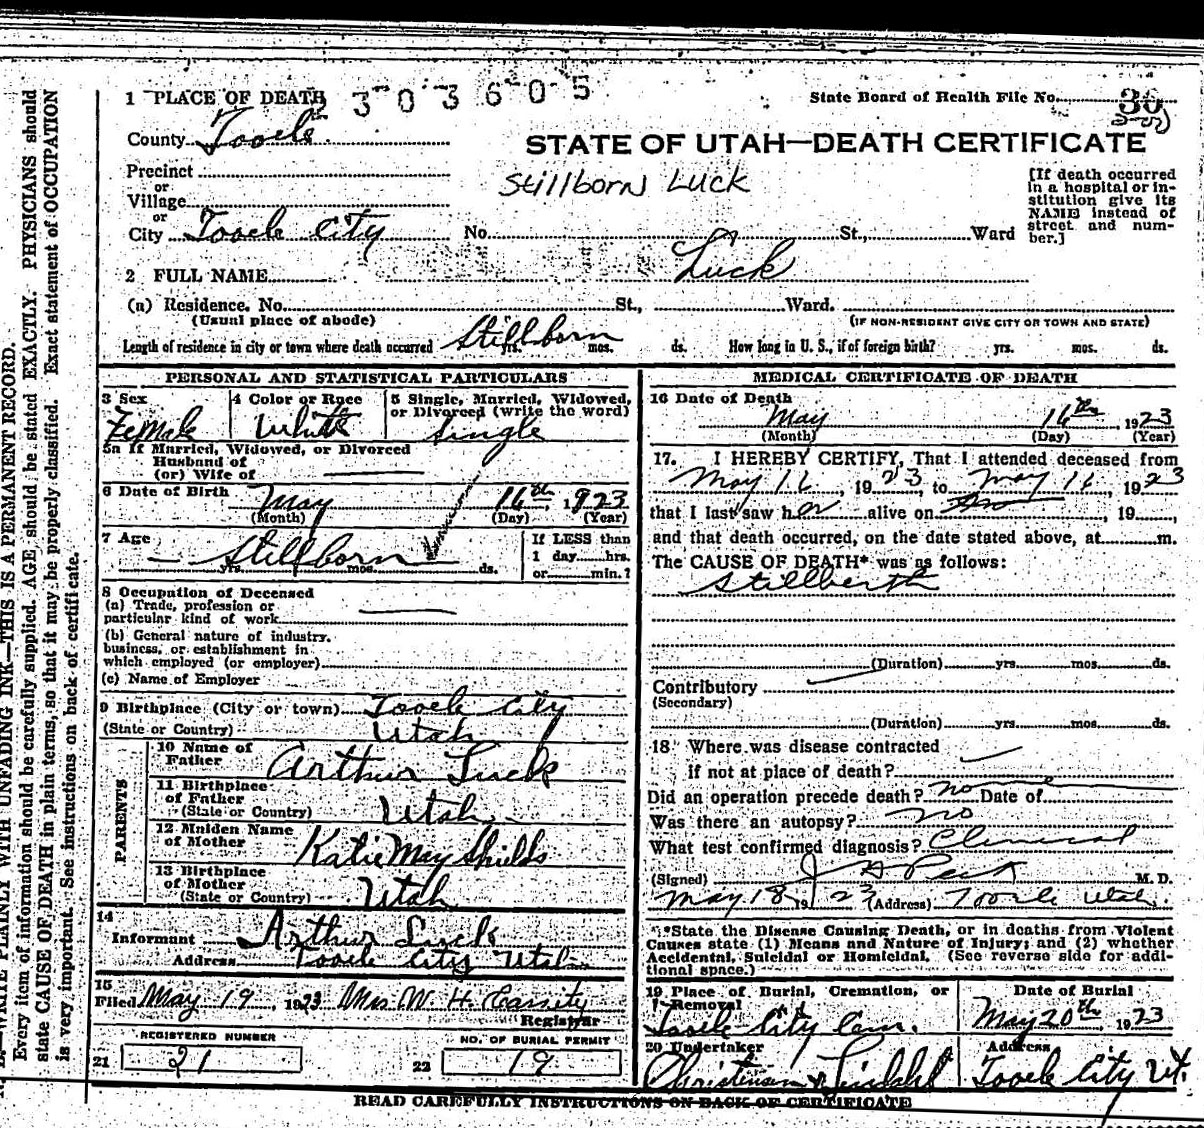 1 PLACE OF DEATH 2 3 0 3 6 0 5
State Board of Health File No. 30
County Tooele
STATE OF UTAH—DEATH CERTIFICATE
Stillborn Luck
Precinct
or
Village
or
City Tooele City No. St., Ward
[If death occurred
in a hospital or in-
stitution give its
NAME instead of
street and num-
ber.]
2 FULL NAME Luck
(a) Residence. No. St., Ward.
(Usual place of abode) (IF NON-RESIDENT GIVE CITY OR TOWN AND STATE)
Length of residence in city or town where death occurred Stillborn yrs. mos. ds. How long in U. S., if of foreign birth? yrs. mos. ds.
PERSONAL AND STATISTICAL PARTICULARS
3 Sex Female
4 Color or Race White
5 Single, Married, Widowed,
or Divorced (write the word)
Single
5a If Married, Widowed, or Divorced
Husband of
(or) Wife of
6 Date of Birth May 16th, 1923
(Month) (Day) (Year)
7 Age Stillborn
yrs. mos. ds.
If LESS than
1 day hrs.
or min.?
8 Occupation of Deceased
(a) Trade, profession or
particular kind of work
(b) General nature of industry,
business, or establishment in
which employed (or employer)
(c) Name of Employer
9 Birthplace (City or town) Tooele City
(State or Country) Utah
PARENTS
10 Name of
Father Arthur Luck
11 Birthplace
of Father
(State or Country) Utah
12 Maiden Name
of Mother Katie May Shields
13 Birthplace
of Mother
(State or Country) Utah
14
Informant Arthur Luck
Address Tooele City Utah
15
Filed May 19, 1923 Mrs W. H. Cassity
Registrar
REGISTERED NUMBER
21 21
NO. OF BURIAL PERMIT
22 19
MEDICAL CERTIFICATE OF DEATH
16 Date of Death
May 16th, 1923
(Month) (Day) (Year)
17. I HEREBY CERTIFY, That I attended deceased from
May 16, 1923, to May 16, 1923
that I last saw her alive on , 19 ,
and that death occurred, on the date stated above, at m.
The CAUSE OF DEATH* was as follows:
Stillberth
(Duration) yrs. mos. ds.
Contributory
(Secondary)
(Duration) yrs. mos. ds.
18. Where was disease contracted
If not at place of death?
Did an operation precede death? no Date of
Was there an autopsy? no
What test confirmed diagnosis? Clinical
(Signed) J A Peck M. D.
May 18, 1923 (Address) Tooele Utah.
*State the Disease Causing Death, or in deaths from Violent
Causes state (1) Means and Nature of Injury; and (2) whether
Accidental, Suicidal or Homicidal. (See reverse side for addi-
tional space.)
19 Place of Burial, Cremation, or
Removal
Tooele City Cem.
Date of Burial
May 20th, 1923
20 Undertaker
Christensen & Lindahl
Address
Tooele City Ut.
READ CAREFULLY INSTRUCTIONS ON BACK OF CERTIFICATE
WRITE PLAINLY WITH UNFADING INK—THIS IS A PERMANENT RECORD.
Every item of information should be carefully supplied. AGE should be stated EXACTLY. PHYSICIANS should
state CAUSE OF DEATH in plain terms, so that it may be properly classified. Exact statement of OCCUPATION
is very important. See instructions on back of certificate.